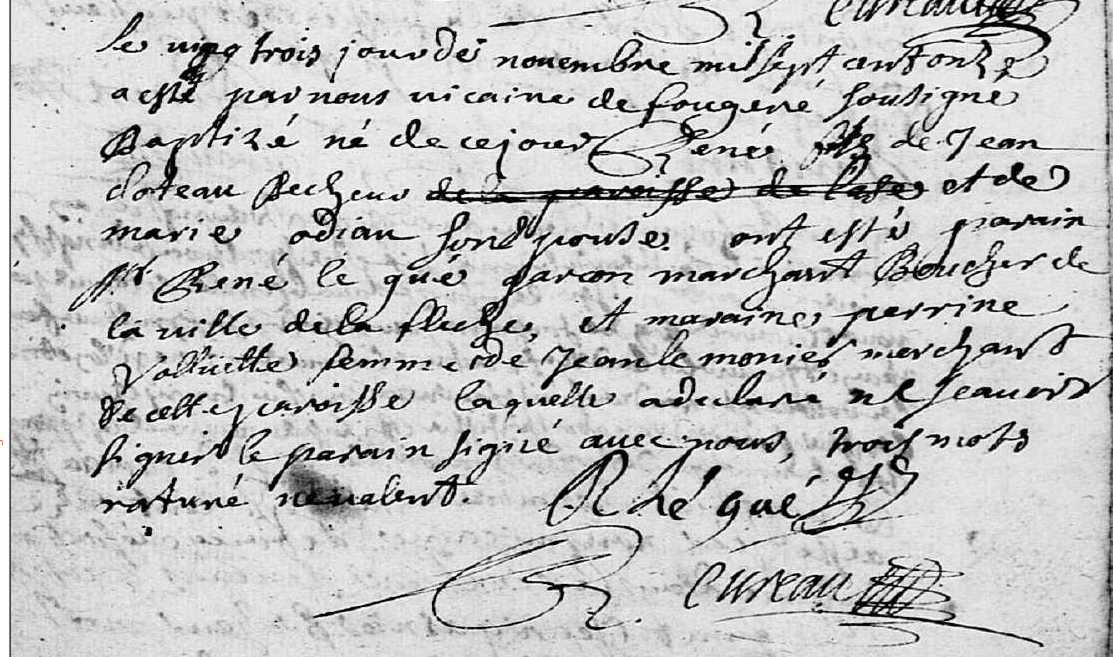 cureau
le vingt trois jour de novembre mil sept cent onze
a esté par nous vicaire de fougeré sousigné
Baptizé né de ce jour René fils de Jean
cloteau Becheur de la paroisse de et de
marie odiau son epouse ont esté parain
René le gué garcon marchant Boucher de
la ville de la fleche, et maraine perrine
femme de Jean le monier marchant
de cette paroisse laquelle a declaré ne scavoir
signer le parain signé avec nous, trois mots
raturé ne valent. R le gué
cureau